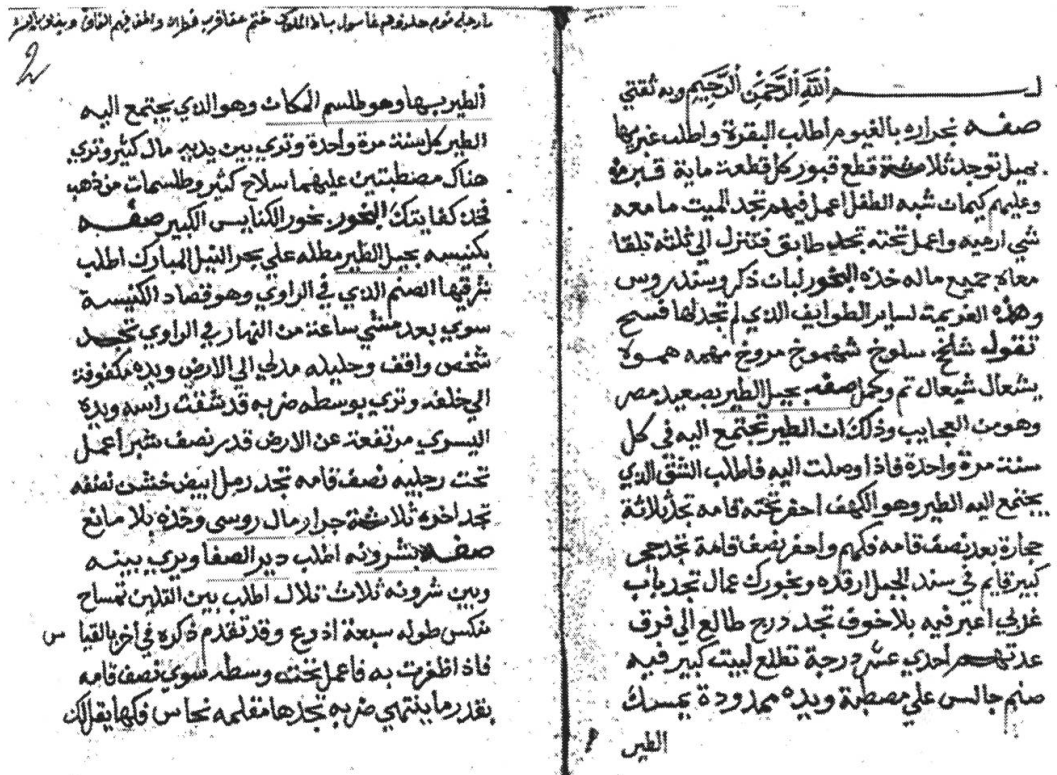 بسـم ألله ألرحمن ألرحيم وبه ثقتي
صفه نجراره بالفيوم اطلب البقرة واطلب غربها
بميل توجد ثلاثة قطع قبور كل قطعة ماية قبر
وعليهم كيمات شبه الطفل اعمل فيهم تجد الميت ما معه
شي ارميه واعمل تحته تجد طابق فتنزل الي ثلثه تلقا
معاه جميع ماله خذه البخور لبان ذكر وسندروس
وهذه العزيمة لساير الطوايف الذي لم تجد لها فسح
تقول شلخ سلوخ شمهموخ مروخ مهيمه همولا
يشعال شيعال تم وكمل صفه بجبل الطير بصعيد مصر
وهو من العجايب وذلك ان الطير تجتمع اليه في كل
سنة مرة واحدة فاذا وصلت اليه فاطلب الشق الذي
يجتمع اليه الطير وهو الكهف احفر تحته قامه تجد ثلاثة
حجارة بعد نصف قامه فكهم واحفر نصف قامة تجد حجر
كبير قايم في سند الجبل ارقده وبخورك عمال تجد باب
غربي اعبر فيه بلا خوف تجد درج طالع الي فوق
عدتهم احدي عشر درجة تطلع لبيت كبير فيه
صنم جالس علي مصطبة ويده ممدودة يمسك
الطير
ألطير بها وهو طلسم المكان وهو الذي يجتمع اليه
الطير كل سنة مرة واحدة وتري بين يديه مال كثير وتري
هناك مصطبتين عليهما سلاح كثير وطلسمات من ذهب
فخذ كفايتك البخور بخور الكنايس الكبير صفه
بكنيسه بجبل الطير مطله علي بحر النيل المبارك اطلب
شرقيها الصنم الذي في الراوي وهو قصاد الكنيسة
سوي بعد مشي ساعة من النهار في الراوي تجد
شخص واقف وحليله مدلي الي الارض ويده مكفوفة
الي خلفه وتري بوسطه ضربه قد شقت راسه ويده
اليسري مرتفعة عن الارض قدر نصف شبر أعمل
تحت رجليه نصف قامه تجد رمل ابيض خشن نصفه
تجد اخره ثلاثة جرار مال روسي وخذه بلا مانع
صفه بشرونه اطلب دير الصفا ويري بينه
وبين شرونه ثلاث تلال اطلب بين التلين تمساح
منكس طوله سبعة اذروع وقد تقدم ذكره في اخر بالقيا س
فاذا ظفرت به فاعمل تحت وسطه سوي نصف قامه
بقدر ما ينتهي ضربه تجدها مقلمه نحاس فكها يقر لك
2